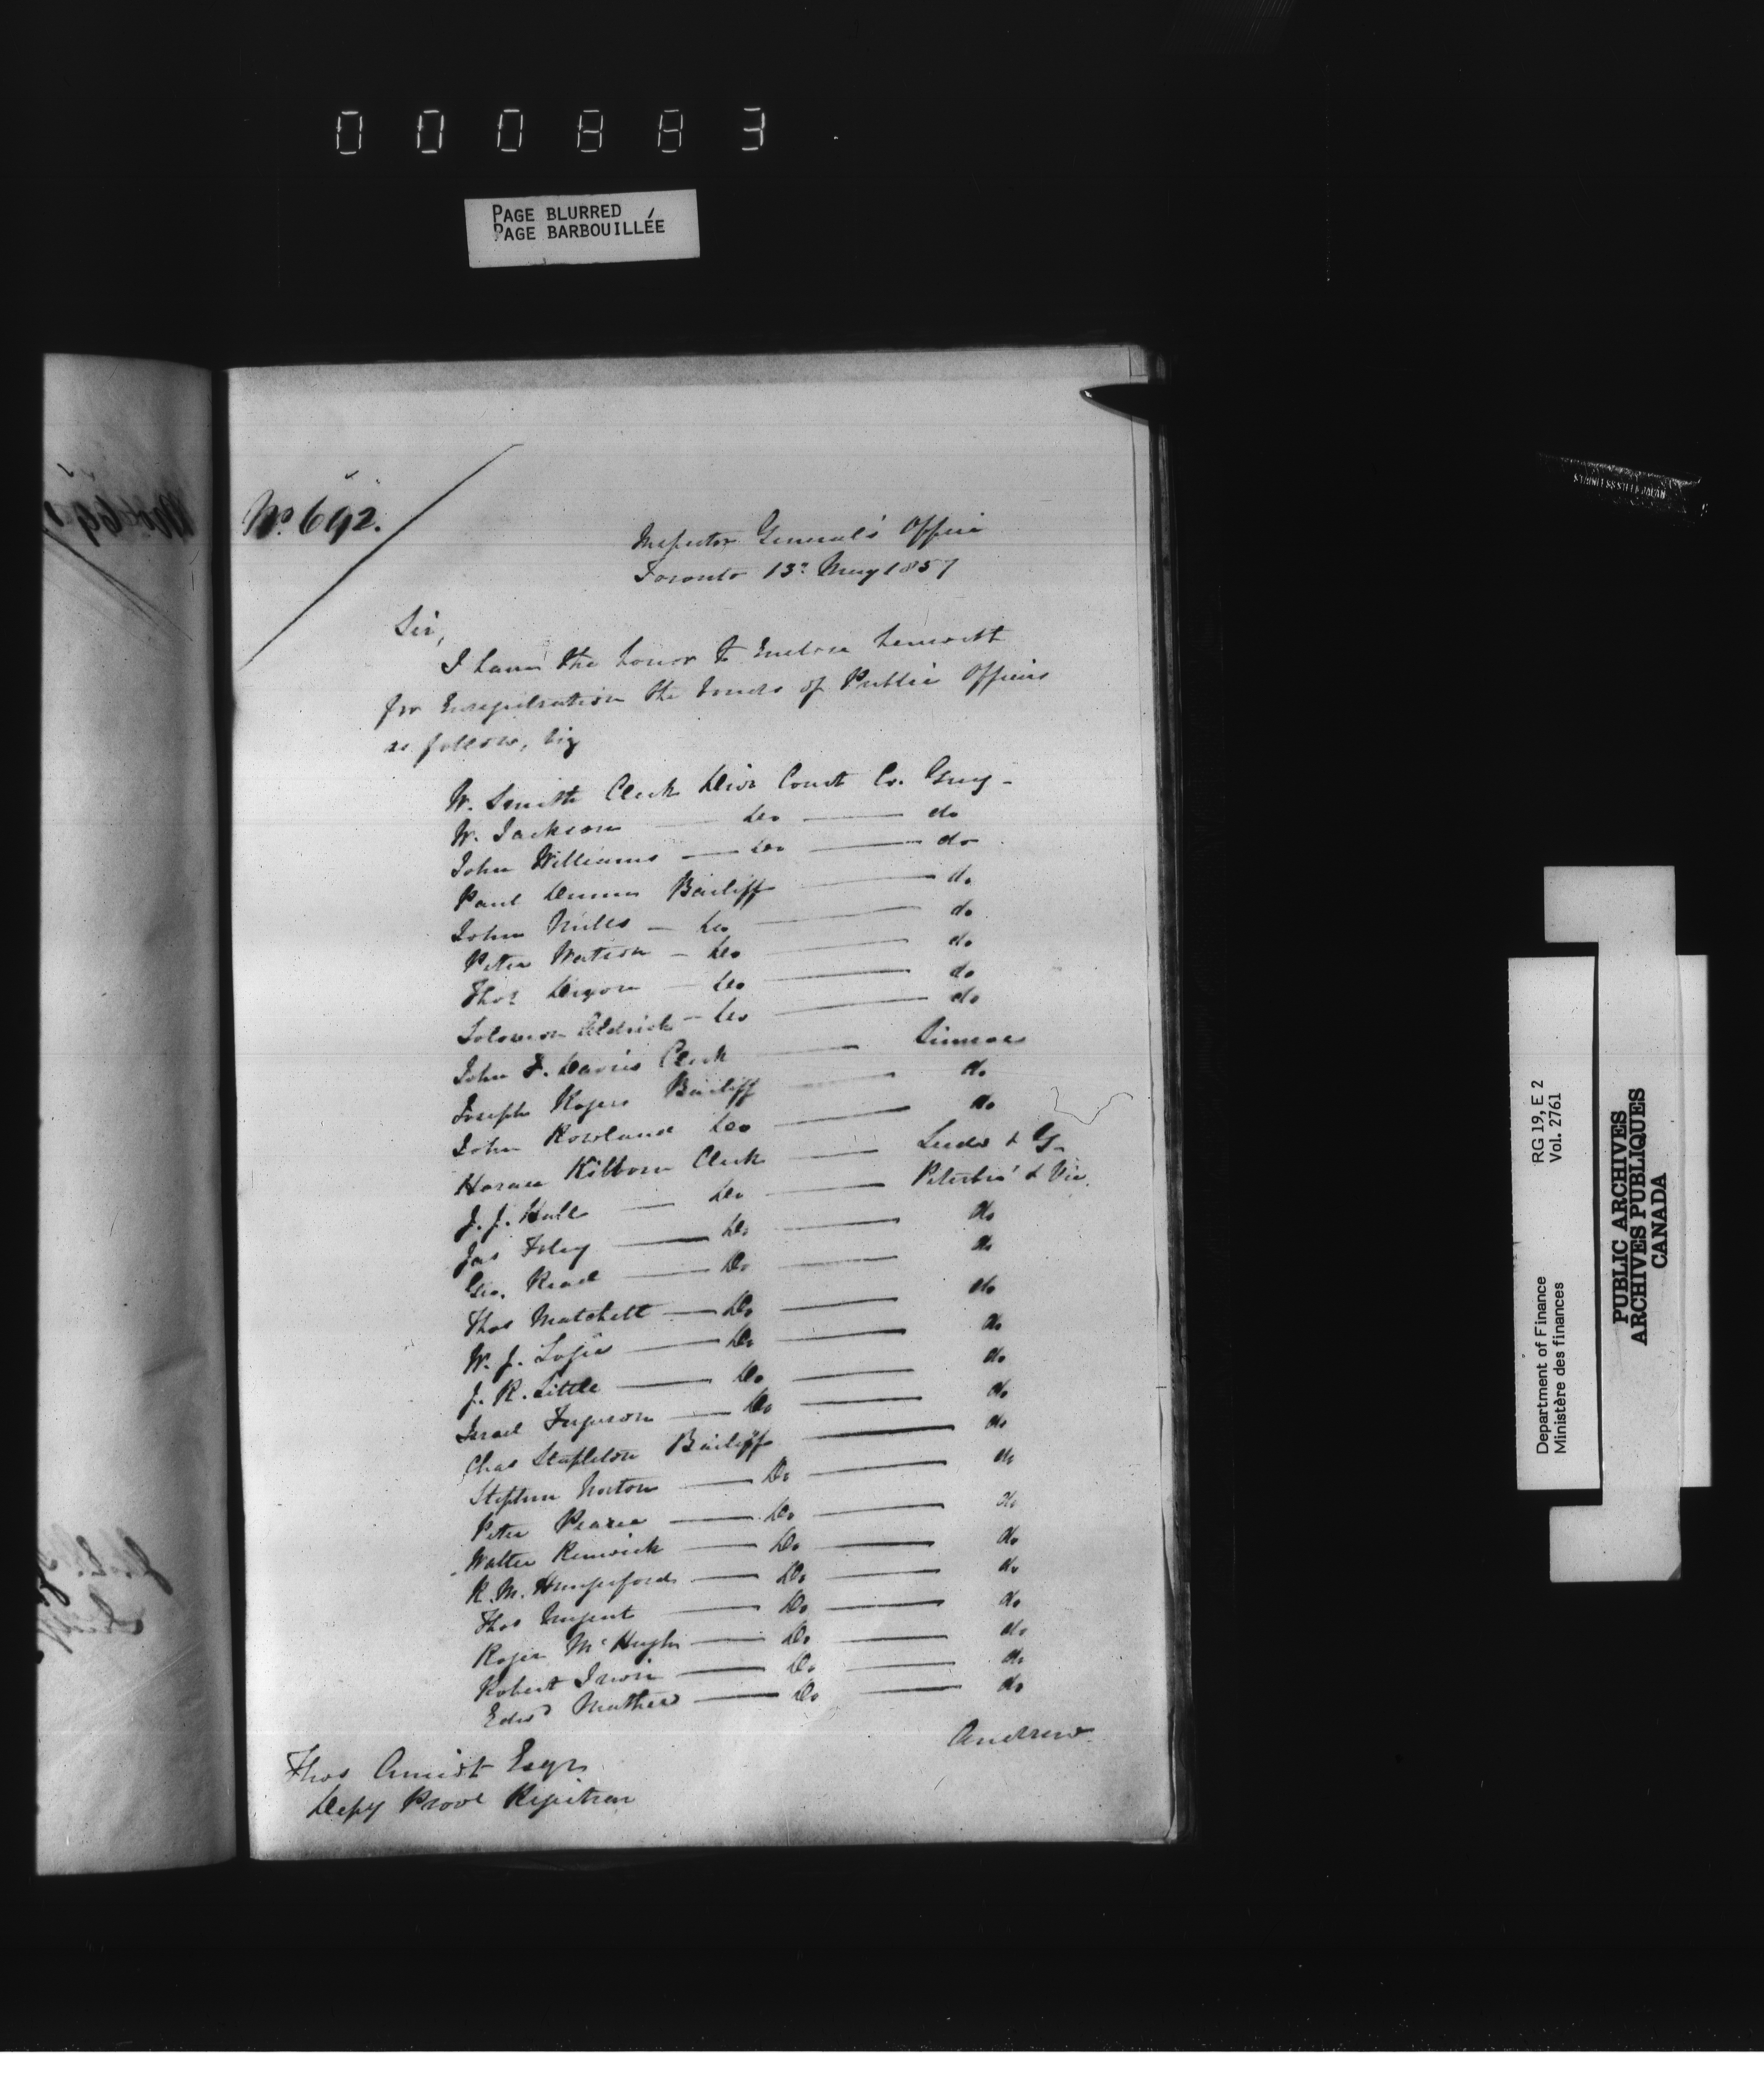 000883
PAGE BLURRED
PAGE BARBOUILLÉE
No. 692.
Inspector General's Office
Toronto 13th May 1857
Sir,
I have the honor to Enclose herewith
for Enregistration the Bonds of Public Officers
as follow, viz
W. Smith Clerk Divn Court Co. Grey
W. Jackson — Do — do
John Williams — Do — do
Paul Dunn Bailiff — do
John Mills — Do — do
Peter Watson — Do — do
Thos Dixon — Do — do
Solomon Aldrich — Do — do
John F. Davis Clerk — Simcoe
Joseph Rogers Bailiff — do
John Rowland Do — do
Horace Kilborn Clerk — Leeds & G.
J. J. Hall — Do — Peterbro' & Vic.
Jas Foley — Do — do
Geo. Read — Do — do
Thos Matchett — Do — do
W. J. Logie — Do — do
J. R. Little — Do — do
Israel Ferguson — Do — do
Chas Stapleton Bailiff — do
Stephen Norton — Do — do
Peter Pearce — Do — do
Walter Renwick — Do — do
R. M. Hungerford — Do — do
Thos Nugent — Do — do
Roger McHugh — Do — do
Robert Irwin — Do — do
Edwd Mathews — Do — do
Andrew
Thos Amiot Esqr
Depy Provl Registrar
RG 19, E 2
Vol. 2761
Department of Finance
Ministère des finances
PUBLIC ARCHIVES
ARCHIVES PUBLIQUES
CANADA